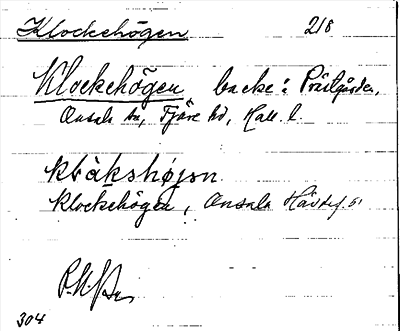 Klockehögen 218
Klockehögen backe: Prästgården,
Onsala sn, Fjäre hd, Hall. l.
klåkshøjən
Klockehögen, Onsala Hävdef. 51
304